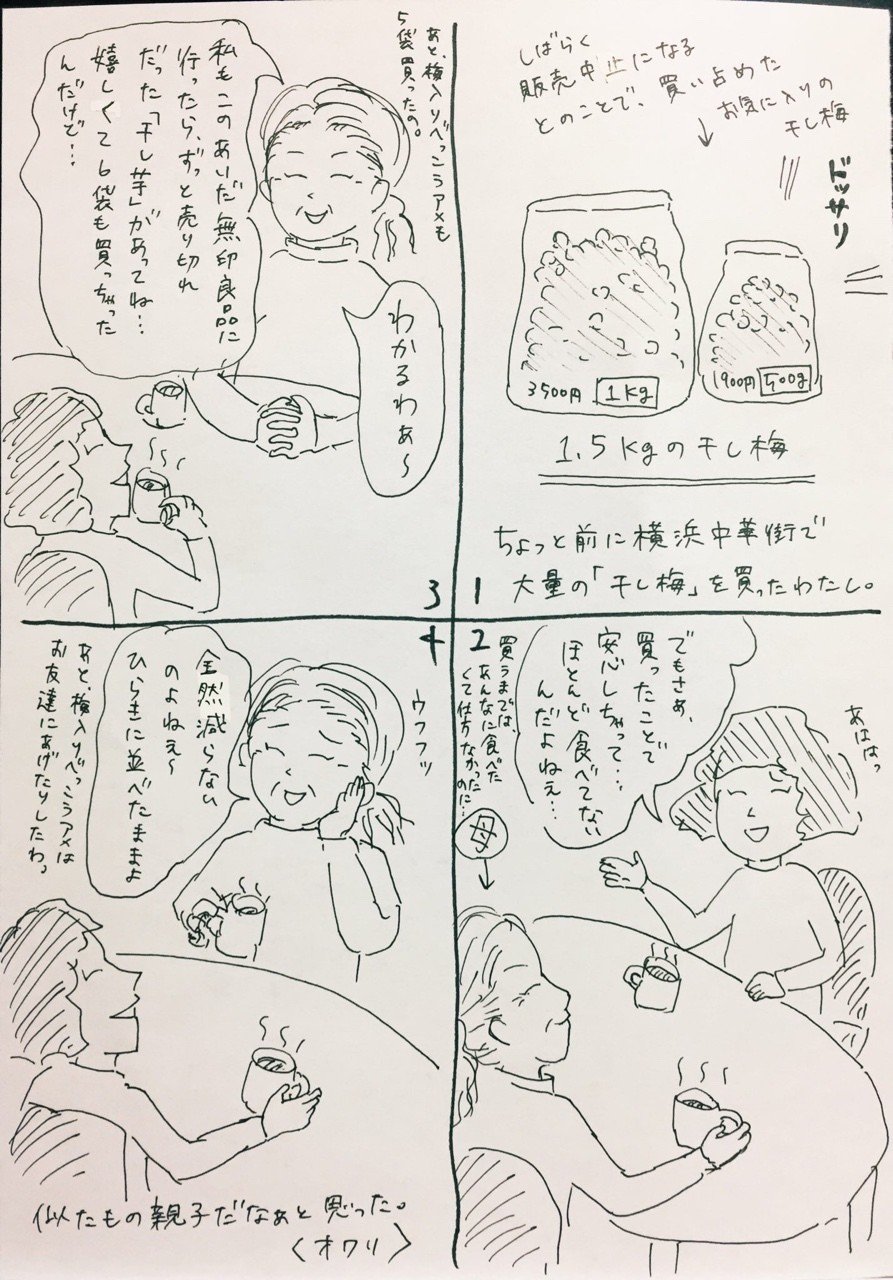 しばらく
販売中止になる
とのことで、買い占めた
お気に入りの
干し梅
ドッサリ
3500円 1kg
1900円 500g
1.5kgの干し梅
ちょっと前に横浜中華街で
大量の「干し梅」を買ったわたし。
1
2
でもさぁ、
買ったことで
安心しちゃって…
ほとんど食べてない
んだよねぇ…
買うまでは、
あんなに食べた
くて仕方なかった
のに…
あははっ
母
3
わかるわぁ〜
私もこのあいだ無印良品に
行ったら、ずっと売り切れ
だった「干し芋」があってね…
嬉しくて6袋も買っちゃった
んだけど…
あと、梅入りべっこうアメも
5袋買ったの。
4
ウフフッ
全然減らない
のよねぇ〜
ひらきに並べたままよ
あと、梅入りべっこうアメは
お友達にあげたりしたわ。
似たもの親子だなぁと思った。
〈オワリ〉